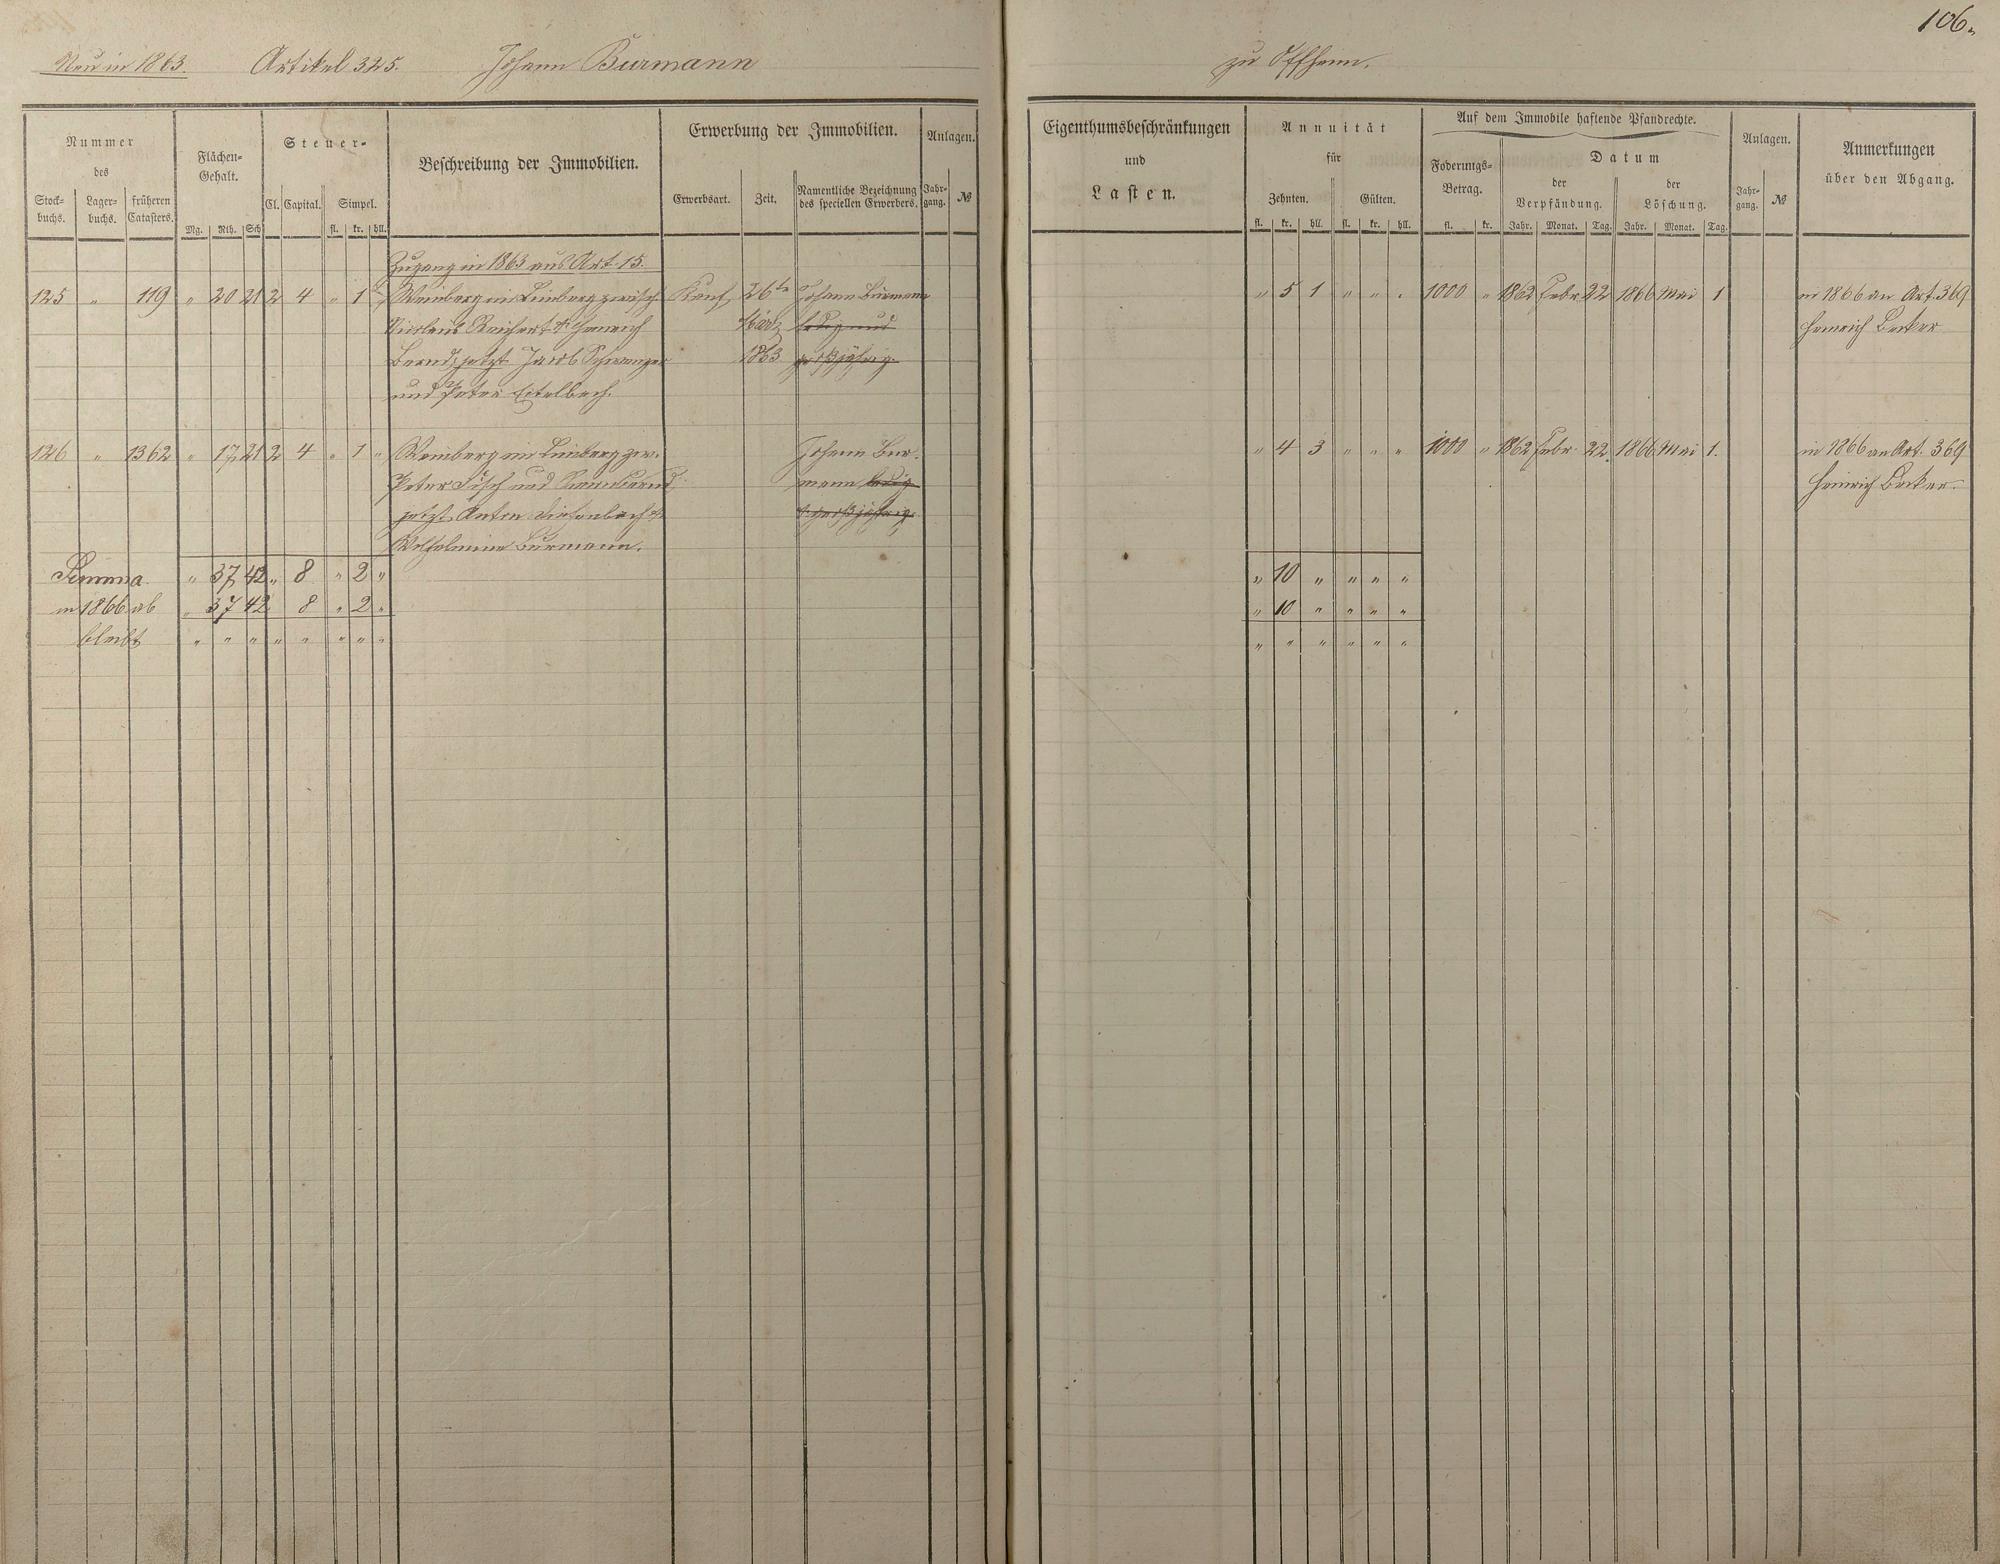 106.
Neu in 1863. Artikel 325. Johann Burmann zu Offheim.
Nummer des
Stockbuchs. Lagerbuchs. früheren Catasters.
Flächen-Gehalt.
Mg. Rth. Sch
Steuer-
Cl. Capital. Simpel.
fl. kr. hll.
Beschreibung der Immobilien.
Erwerbung der Immobilien.
Erwerbsart. Zeit. Namentliche Bezeichnung des speciellen Erwerbers.
Anlagen.
Jahrgang. №
Eigenthumsbeschränkungen
und
Lasten.
Annuität
für
Zehnten. Gülten.
fl. kr. hll. fl. kr. hll.
Auf dem Immobile haftende Pfandrechte.
Foderungs-Betrag.
fl. kr.
Datum
der Verpfändung. der Löschung.
Jahr. Monat. Tag. Jahr. Monat. Tag.
Anlagen.
Jahrgang. №
Anmerkungen
über den Abgang.
Zugang in 1863 aus Art. 15.
125 " 119 " 20 21 2 4 " 1 " Weinberg im Limberg zwisch. Kauf 26te Johann Burmann " 5 1 " " " 1000 " 1862 Febr. 22 1866 Mai 1 in 1866 an Art. 369
Nicolaus Reichert & Heinrich März ledig und Heinrich Becker
Bernd, jetzt Jacob 1863 großjährig.
und Peter Eitelbach.
126 " 1362 " 17 21 2 4 " 1 " Weinberg im Limberg zw. Johann Bur- " 4 3 " " " 1000 " 1862 Febr. 22. 1866 Mai 1. in 1866 an Art. 369
Peter und mann ledig Heinrich Becker.
jetzt Anton Diefenbach & & großjährig.
Wilhelmine Burmann.
Summa. " 37 42 " 8 " 2 " " 10 " " " "
in 1866 ab " 37 42 8 " 2 " " 10 " " " "
bleibt " " " " " " " " " " " " " "